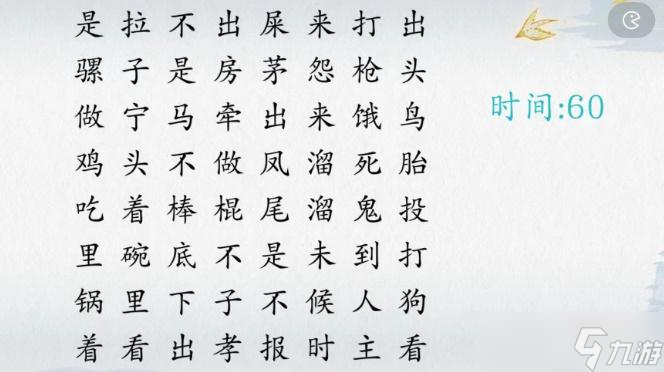 是拉不出屎来打出
骡子是房茅怨枪头
做宁马牵出来饿鸟
鸡头不做凤溜死胎
吃着棒棍尾溜鬼投
里碗底不是未到打
锅里下子不候人狗
着看出孝报时主看
时间:60
九游